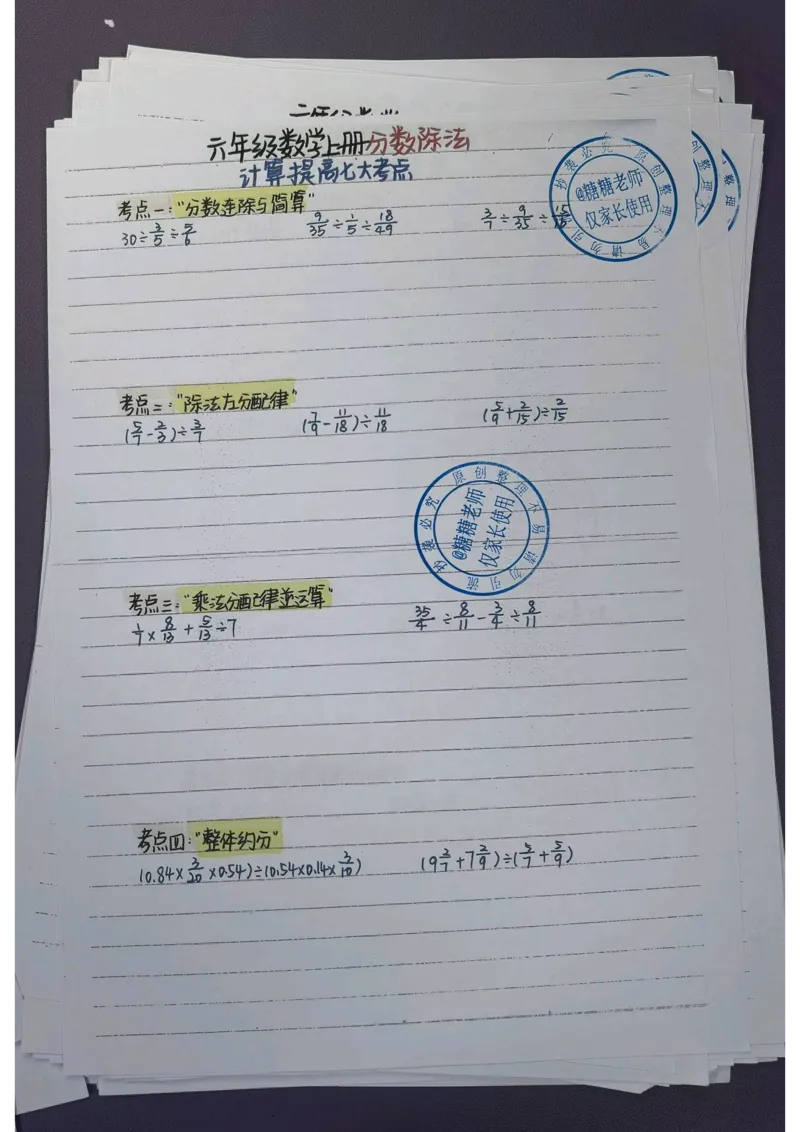 六年级数学上册分数除法
计算提高七大考点
考点一:"分数连除与简算"
30÷3/5÷5/6 9/35÷1/5÷18/49 3/7÷9/35÷
考点二:"除法左分配律"
(5/7-2/3)÷3/7 (7/9-11/18)÷11/18 (5/9+2/15)÷2/15
考点三:"乘法分配律逆运算"
1/7×8/13+5/13÷7 35/4÷8/11-3/4÷8/11
考点四:"整体约分"
(0.84×3/20×0.54)÷(0.54×0.14×3/10) (9 2/7+7 2/9)÷(5/7+5/9)
原创整理不易请勿引流抄袭必究
@糖糖老师
仅家长使用
原创整理不易请勿引流抄袭必究
@糖糖老师
仅家长使用